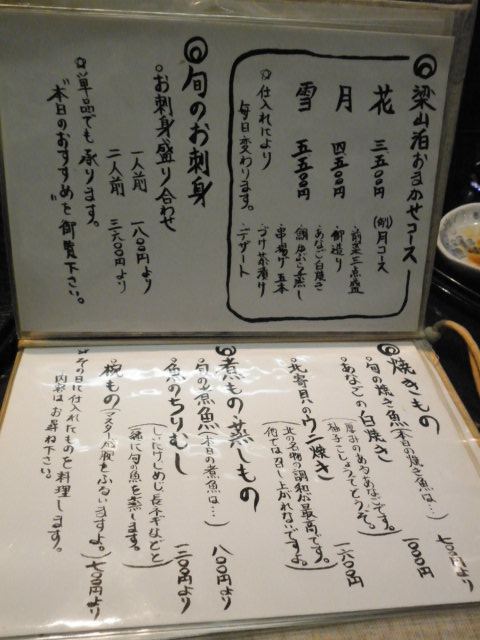 梁山泊おまかせコース
花 三五〇〇円
月 四五〇〇円
雪 五五〇〇円
(例)月コース
・前菜三点盛
・御造り
・あなご白焼き
・鯛かぶら蒸し
・串揚げ五本
・づけ茶漬け
・デザート
☆仕入れにより
毎日変わります。
旬のお刺身
○お刺身盛り合わせ
一人前 一八〇〇円より
二人前 三六〇〇円より
☆単品でも承ります。
"本日のおすすめ"を御覧下さい。
焼きもの
・旬の焼き魚(本日の焼き魚は…) 七〇〇円より
・あなごの白焼き 一〇〇〇円
(厚みのあるあなごです。
柚子こしょうでどうぞ。)
・北寄貝のウニ焼き 一六〇〇円
(北の名物の調和が最高です。
他では召し上がれないですよ。)
煮もの蒸しもの
・旬の煮魚(本日の煮魚は…) 八〇〇円より
・魚のちりむし 一二〇〇円より
(しいたけ、しめじ、長ネギなどと
一緒に旬の魚を蒸します。)
・椀もの(マスターが腕をふるいますよ。) 七〇〇円より
☆その日に仕入れたものを料理します。
内容はお尋ね下さい。